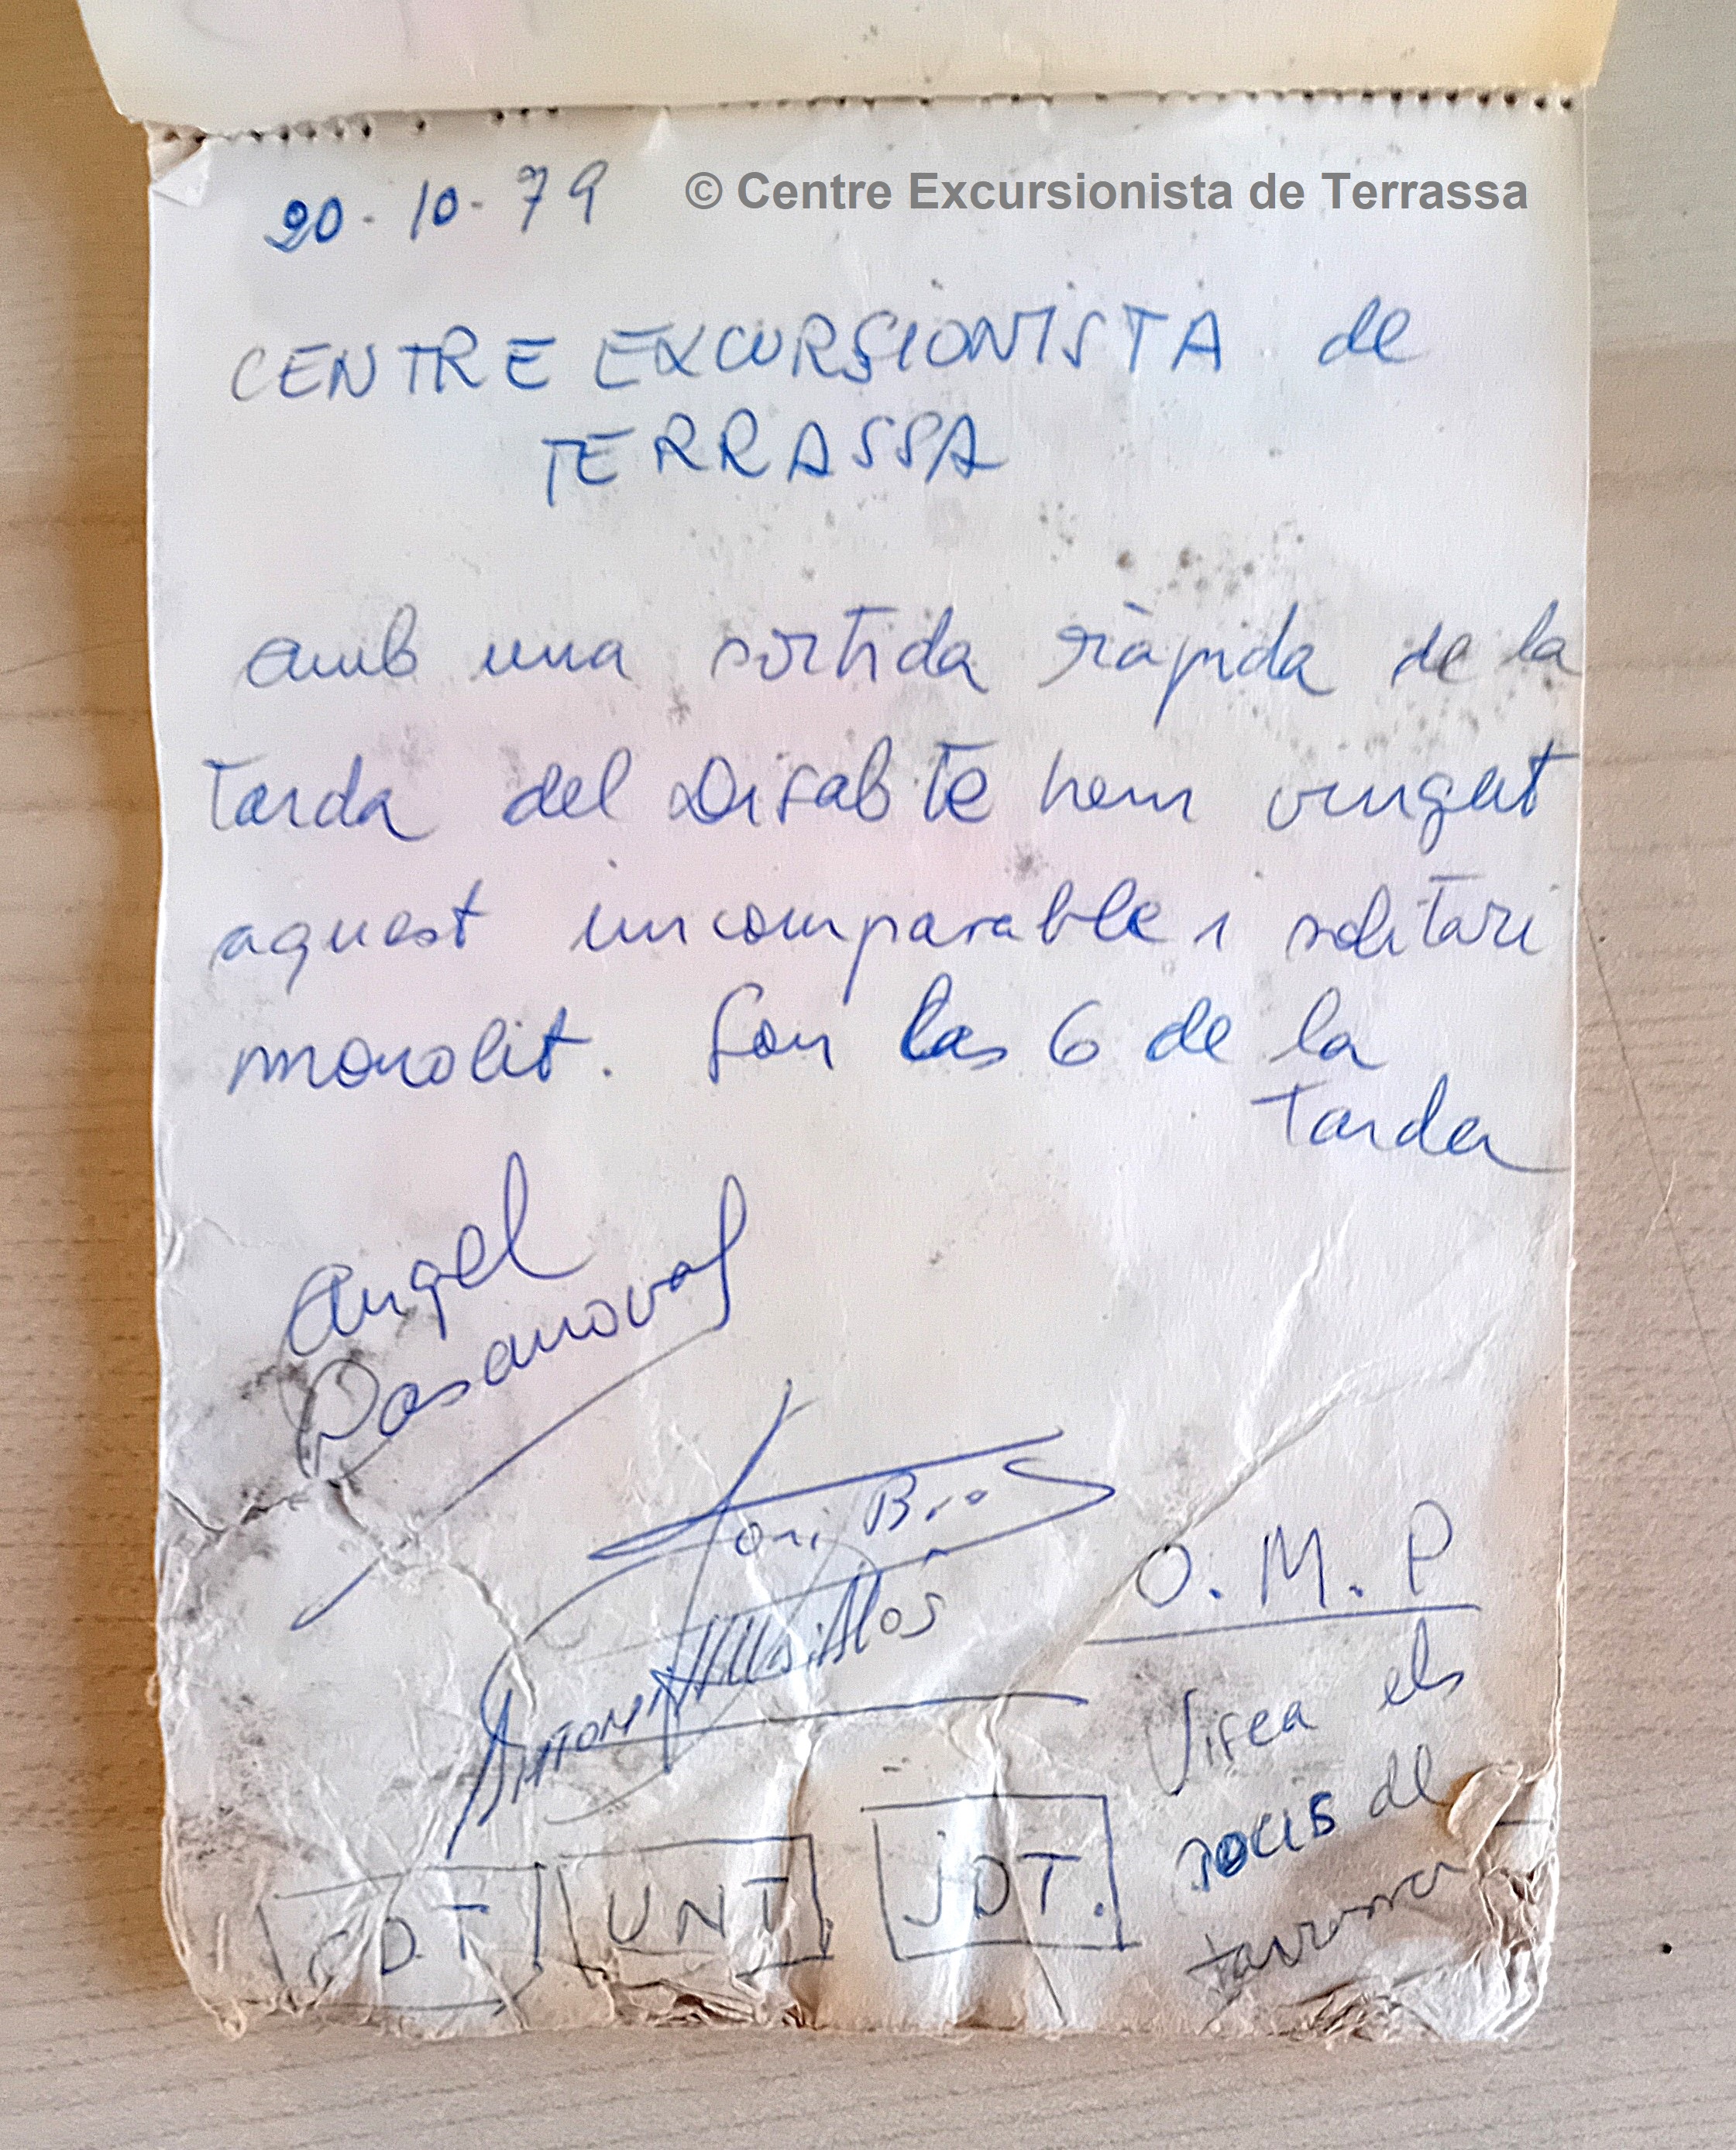 20-10-79
© Centre Excursionista de Terrassa
CENTRE EXCURSIONISTA de
TERRASSA
amb una sortida ràpida de la
tarda del Disabte hem vingut
aquest incomparable i solitari
monolit. Son las 6 de la
tarda
Angel
Casanovas
Toni Bros
Antoni
O.M.P
Visca els
socis de
CDT UNT JDT.